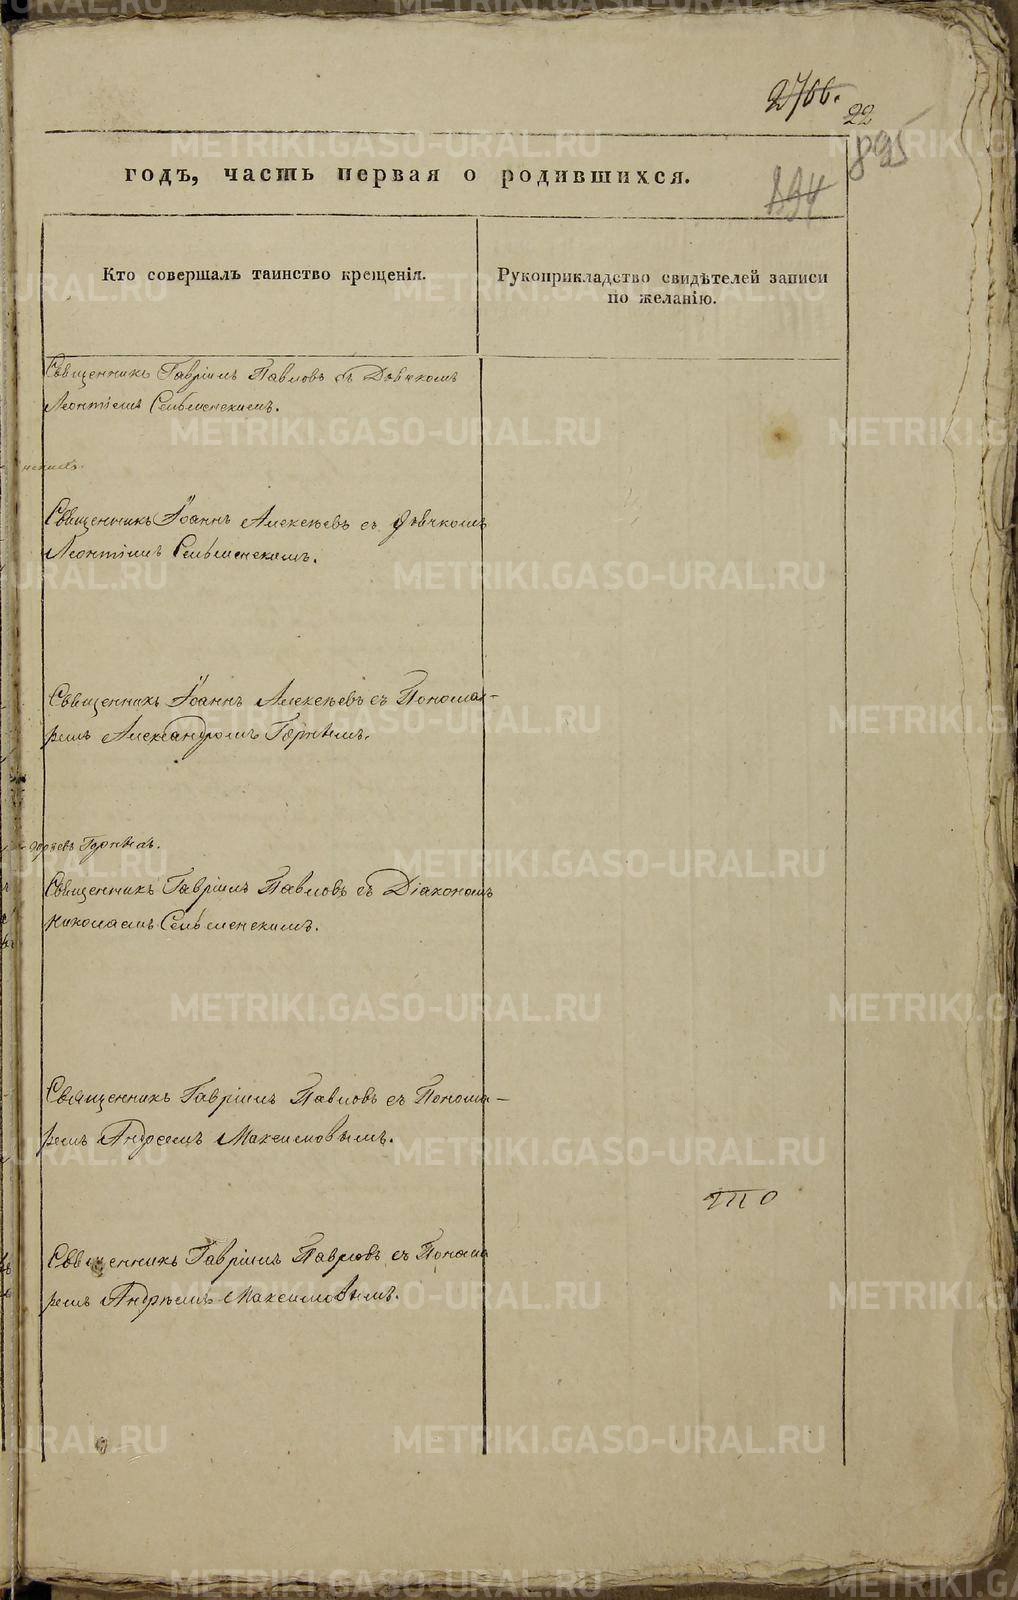 2766.
22
895
894
годъ, часть первая о родившихся.
Кто совершалъ таинство крещенія.
Рукоприкладство свидѣтелей записи
по желанію.
Священникъ Гавріилъ Павловъ съ Дьячкомъ
Леонтіемъ Сельменскимъ.
Священникъ Іоаннъ Алексѣевъ съ дьячкомъ
Леонтіемъ Сельменскимъ.
Священникъ Іоаннъ Алексѣевъ съ Понома-
ремъ Александромъ
Священникъ Гавріилъ Павловъ съ Діакономъ
Николаемъ Сельменскимъ.
Священникъ Гавріилъ Павловъ съ Понома-
ремъ Андреемъ Максимовымъ.
Священникъ Гавріилъ Павловъ съ Понома
ремъ Андрѣемъ Максимовымъ.
METRIKI.GASO-URAL.RU